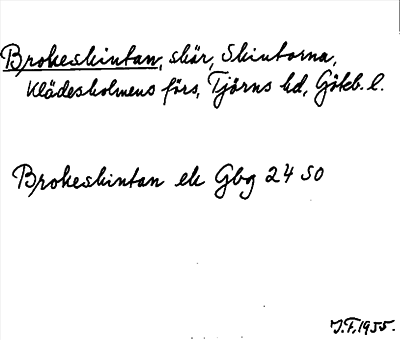 Brokeskintan, skär, Skintorna,
Klädesholmens förs, Tjörns hd, Göteb. l.
Brokeskintan ek Gbg 24 SO
J.F. 1955.